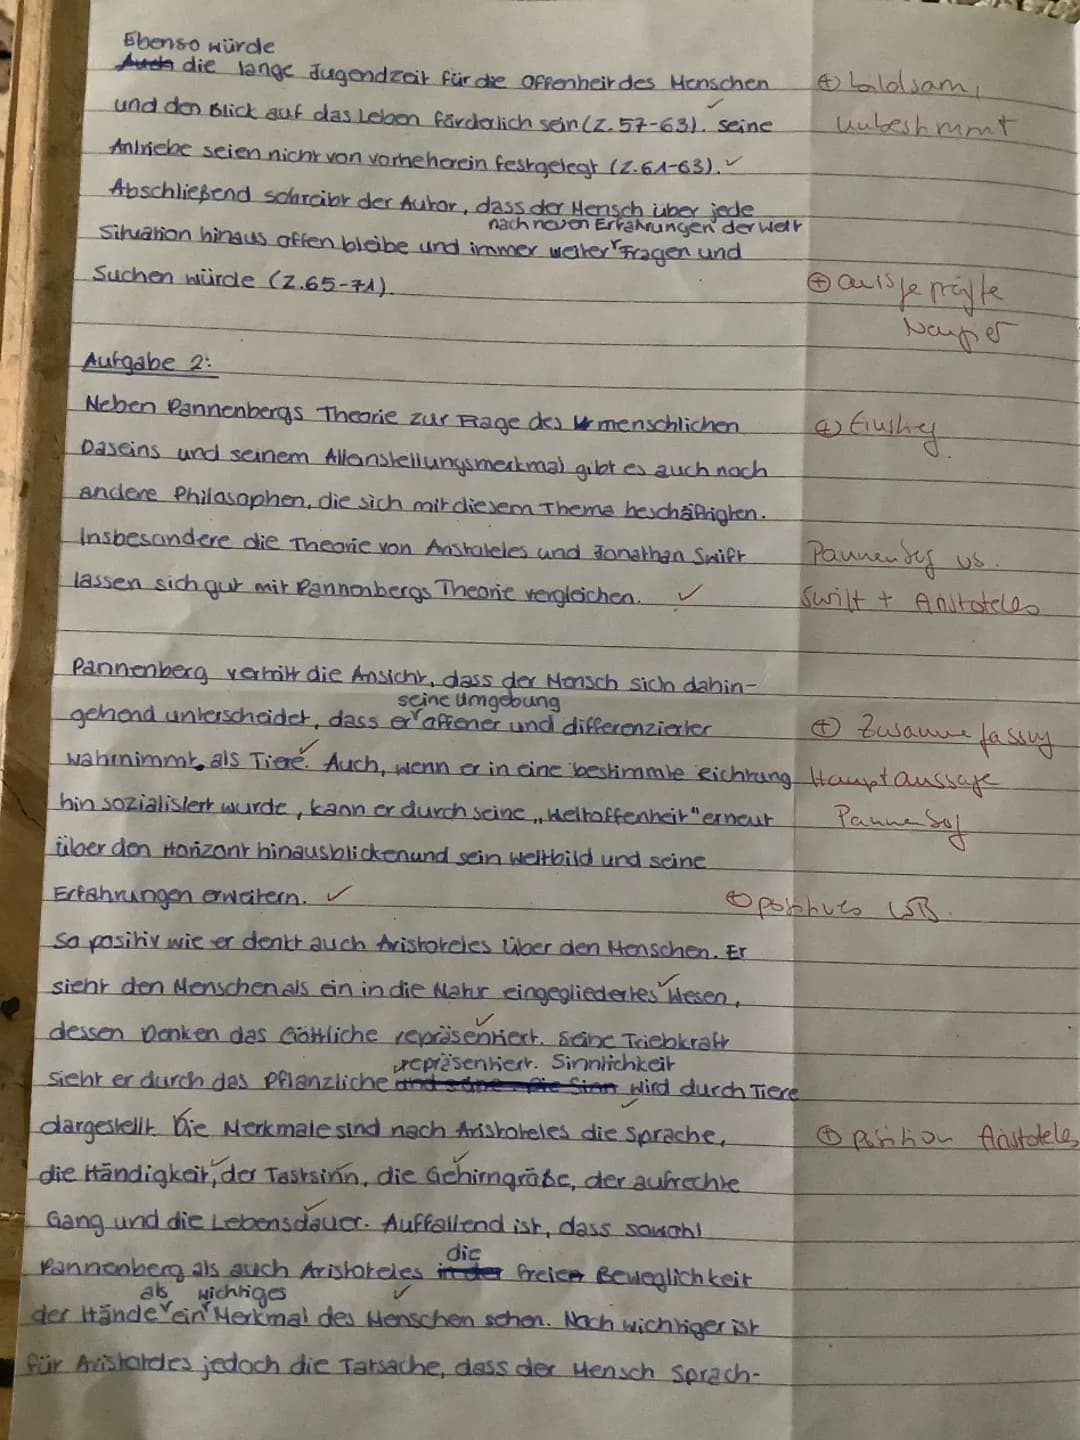 Ebenso würde
Auch die lange Jugendzeit für die Offenheit des Menschen
⊕ bildsam,
und den Blick auf das Leben förderlich sein (Z. 57-63). seine
unbestimmt
Antriebe seien nicht von vorneherein festgelegt (Z. 61-63). ✓
Abschließend schreibt der Autor, dass der Mensch über jede
nach neuen Erfahrungen der Welt
Situation hinaus offen bleibe und immer weiter Fragen und
Suchen würde (Z. 65-71).
⊕ ausgeprägte
Neugier
Aufgabe 2:
Neben Pannenbergs Theorie zur Frage des menschlichen
⊕ Einstieg
Daseins und seinem Alleinstellungsmerkmal gibt es auch noch
andere Philosophen, die sich mit diesem Thema beschäftigten.
Insbesondere die Theorie von Aristoteles und Jonathan Swift
Pannenbg vs.
lassen sich gut mit Pannenbergs Theorie vergleichen. ✓
Swift + Aristoteles
Pannenberg vertritt die Ansicht, dass der Mensch sich dahin-
seine Umgebung
gehend unterscheidet, dass er offener und differenzierter
⊕ Zusammenfassung
wahrnimmt als Tiere. Auch, wenn er in eine bestimmte Richtung
Hauptaussage
hin sozialisiert wurde, kann er durch seine „Weltoffenheit" erneut
Pannenbg
über den Horizont hinausblicken und sein Weltbild und seine
Erfahrungen erweitern. ✓
⊕ positives
So positiv wie er denkt auch Aristoteles über den Menschen. Er
sieht den Menschen als ein in die Natur eingegliedertes Wesen,
dessen Denken das Göttliche repräsentiert. Seine Triebkraft
repräsentiert. Sinnlichkeit
sieht er durch das Pflanzliche und seine. Die Sinn wird durch Tiere
dargestellt. Die Merkmale sind nach Aristoteles die Sprache,
⊕ Position Aristoteles
die Händigkeit, der Tastsinn, die Gehirngröße, der aufrechte
Gang und die Lebensdauer. Auffallend ist, dass sowohl
die
Pannenberg als auch Aristoteles in der freie Beweglichkeit
als wichtiges
der Hände ein Merkmal des Menschen sehen. Noch wichtiger ist
für Aristoteles jedoch die Tatsache, dass der Mensch Sprach-